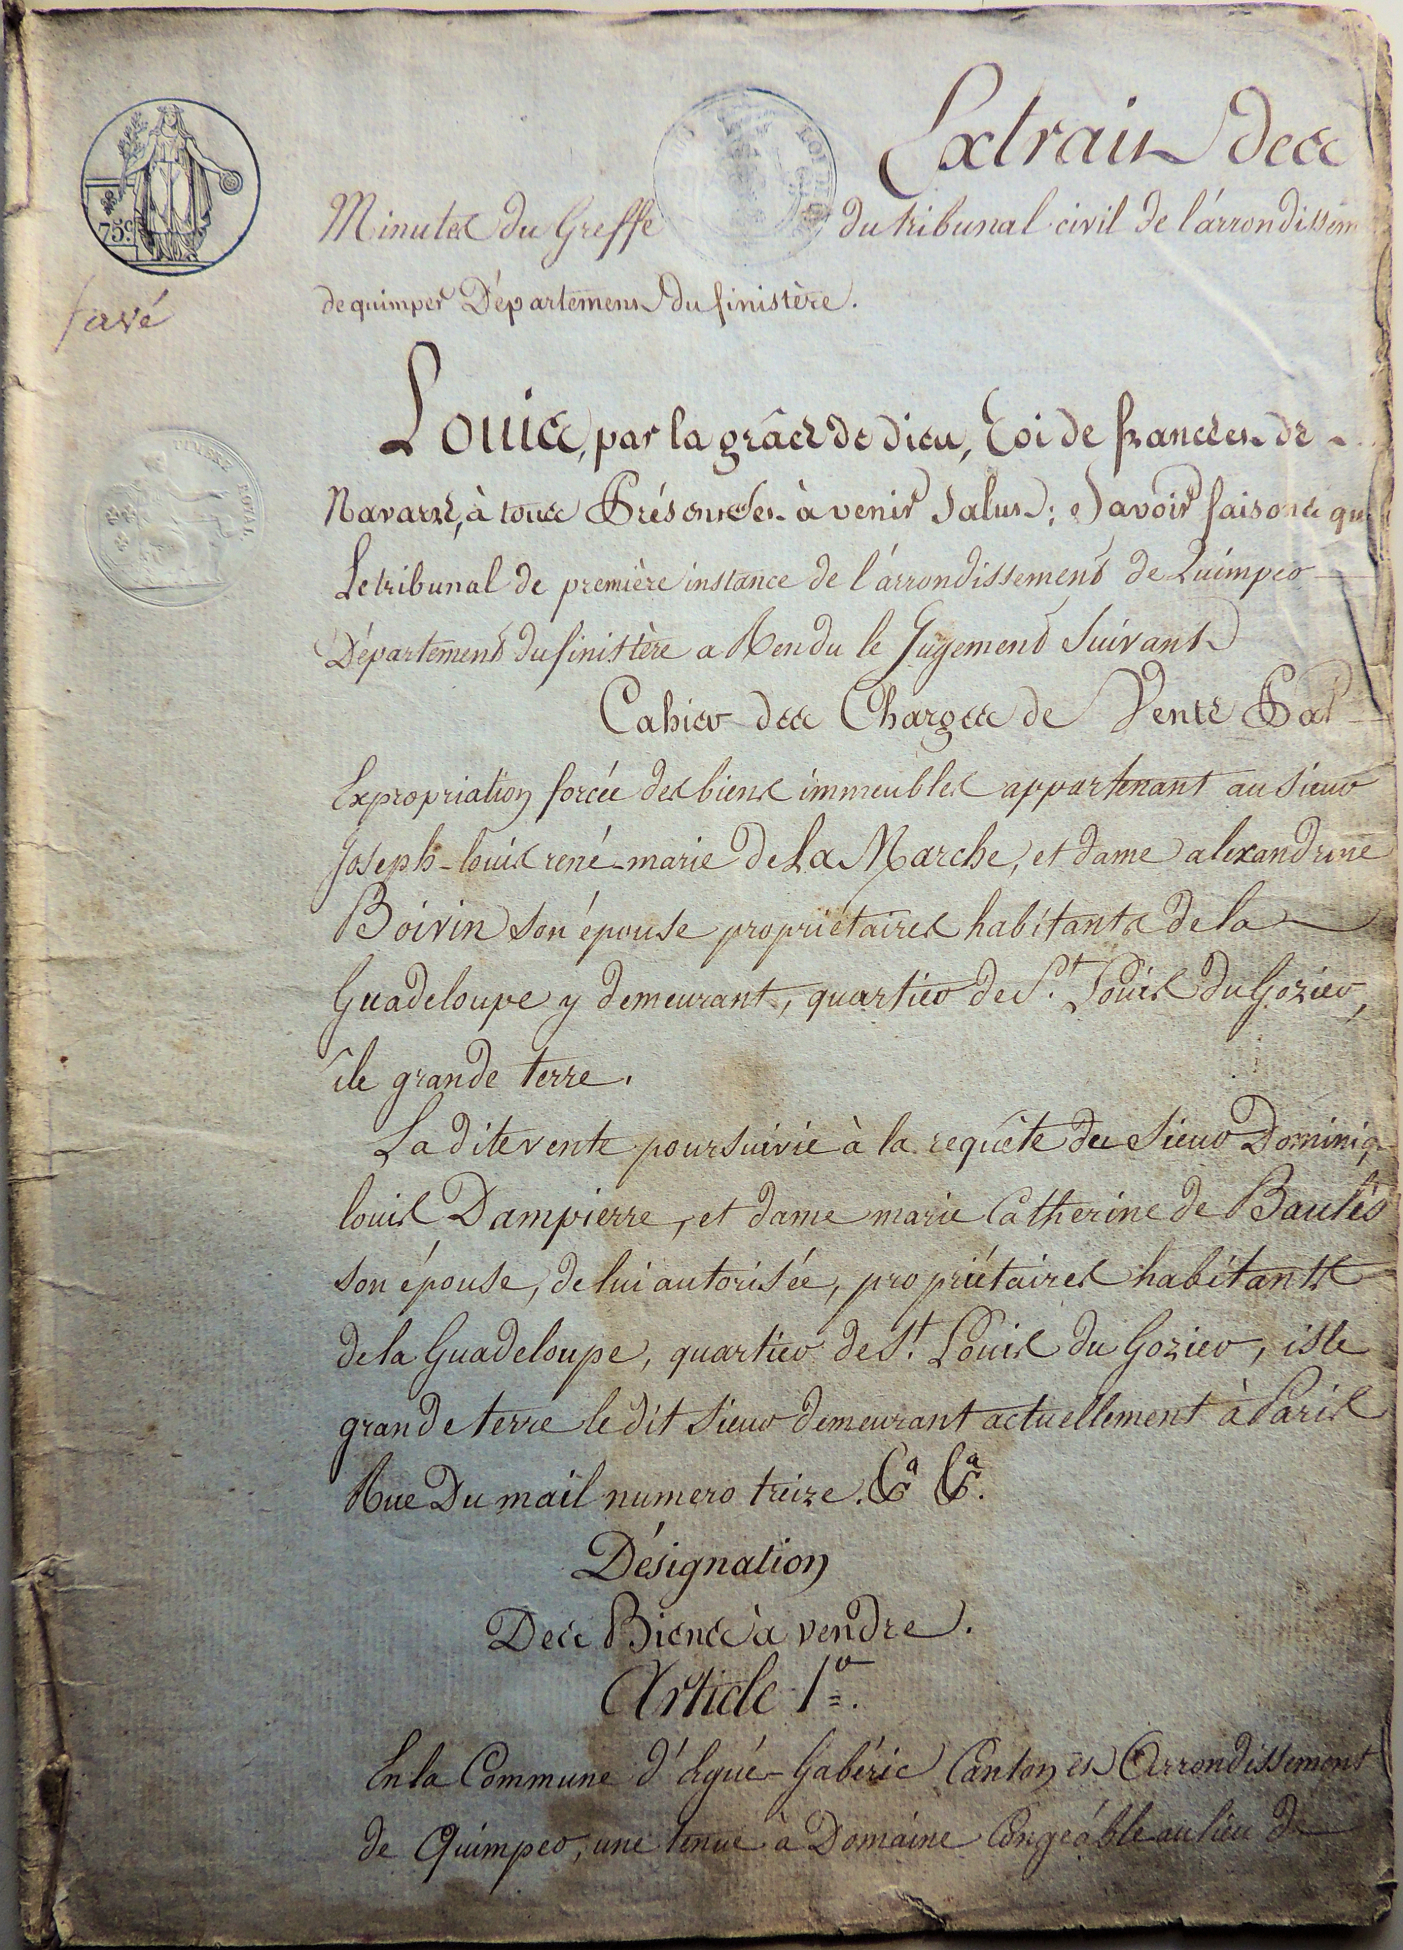 Extrait des
75c
Minutes du Greffe du tribunal civil de l'arrondissem
de quimper Département du finistère.
favé
Louis, par la grâce de dieu, Roi de france et de
TIMBRE ROYAL
Navarre, à tous Présents et à venir Salut; Savoir faisons qu
Le tribunal de première instance de l'arrondissement de Quimper
Département du finistère a Rendu le Jugement Suivant
Cahier des Charges de Vente Par
Expropriation forcée des biens immeubles appartenant au Sieur
Joseph-louis rené-marie de La Marche, et dame alexandrine
Boivin son épouse propriétaires habitants de la
Guadeloupe y demeurant, quartier de St. Louis du Gozier,
île grande terre.
La dite vente poursuivie à la requête des Sieur Dominiq
louis Dampierre, et dame marie Catherine de Baulés
son épouse, de lui autorisée, propriétaires habitants
de la Guadeloupe, quartier de St. Louis du Gozier, isle
grande terre le dit Sieur demeurant actuellement à Paris
Rue Du mail numero treize.
Désignation
Des Biens à vendre.
Article 1er.
En la Commune d'Ergué-Gabéric Canton et Arrondissement
de Quimper, une tenue à Domaine Congéable au lieu de